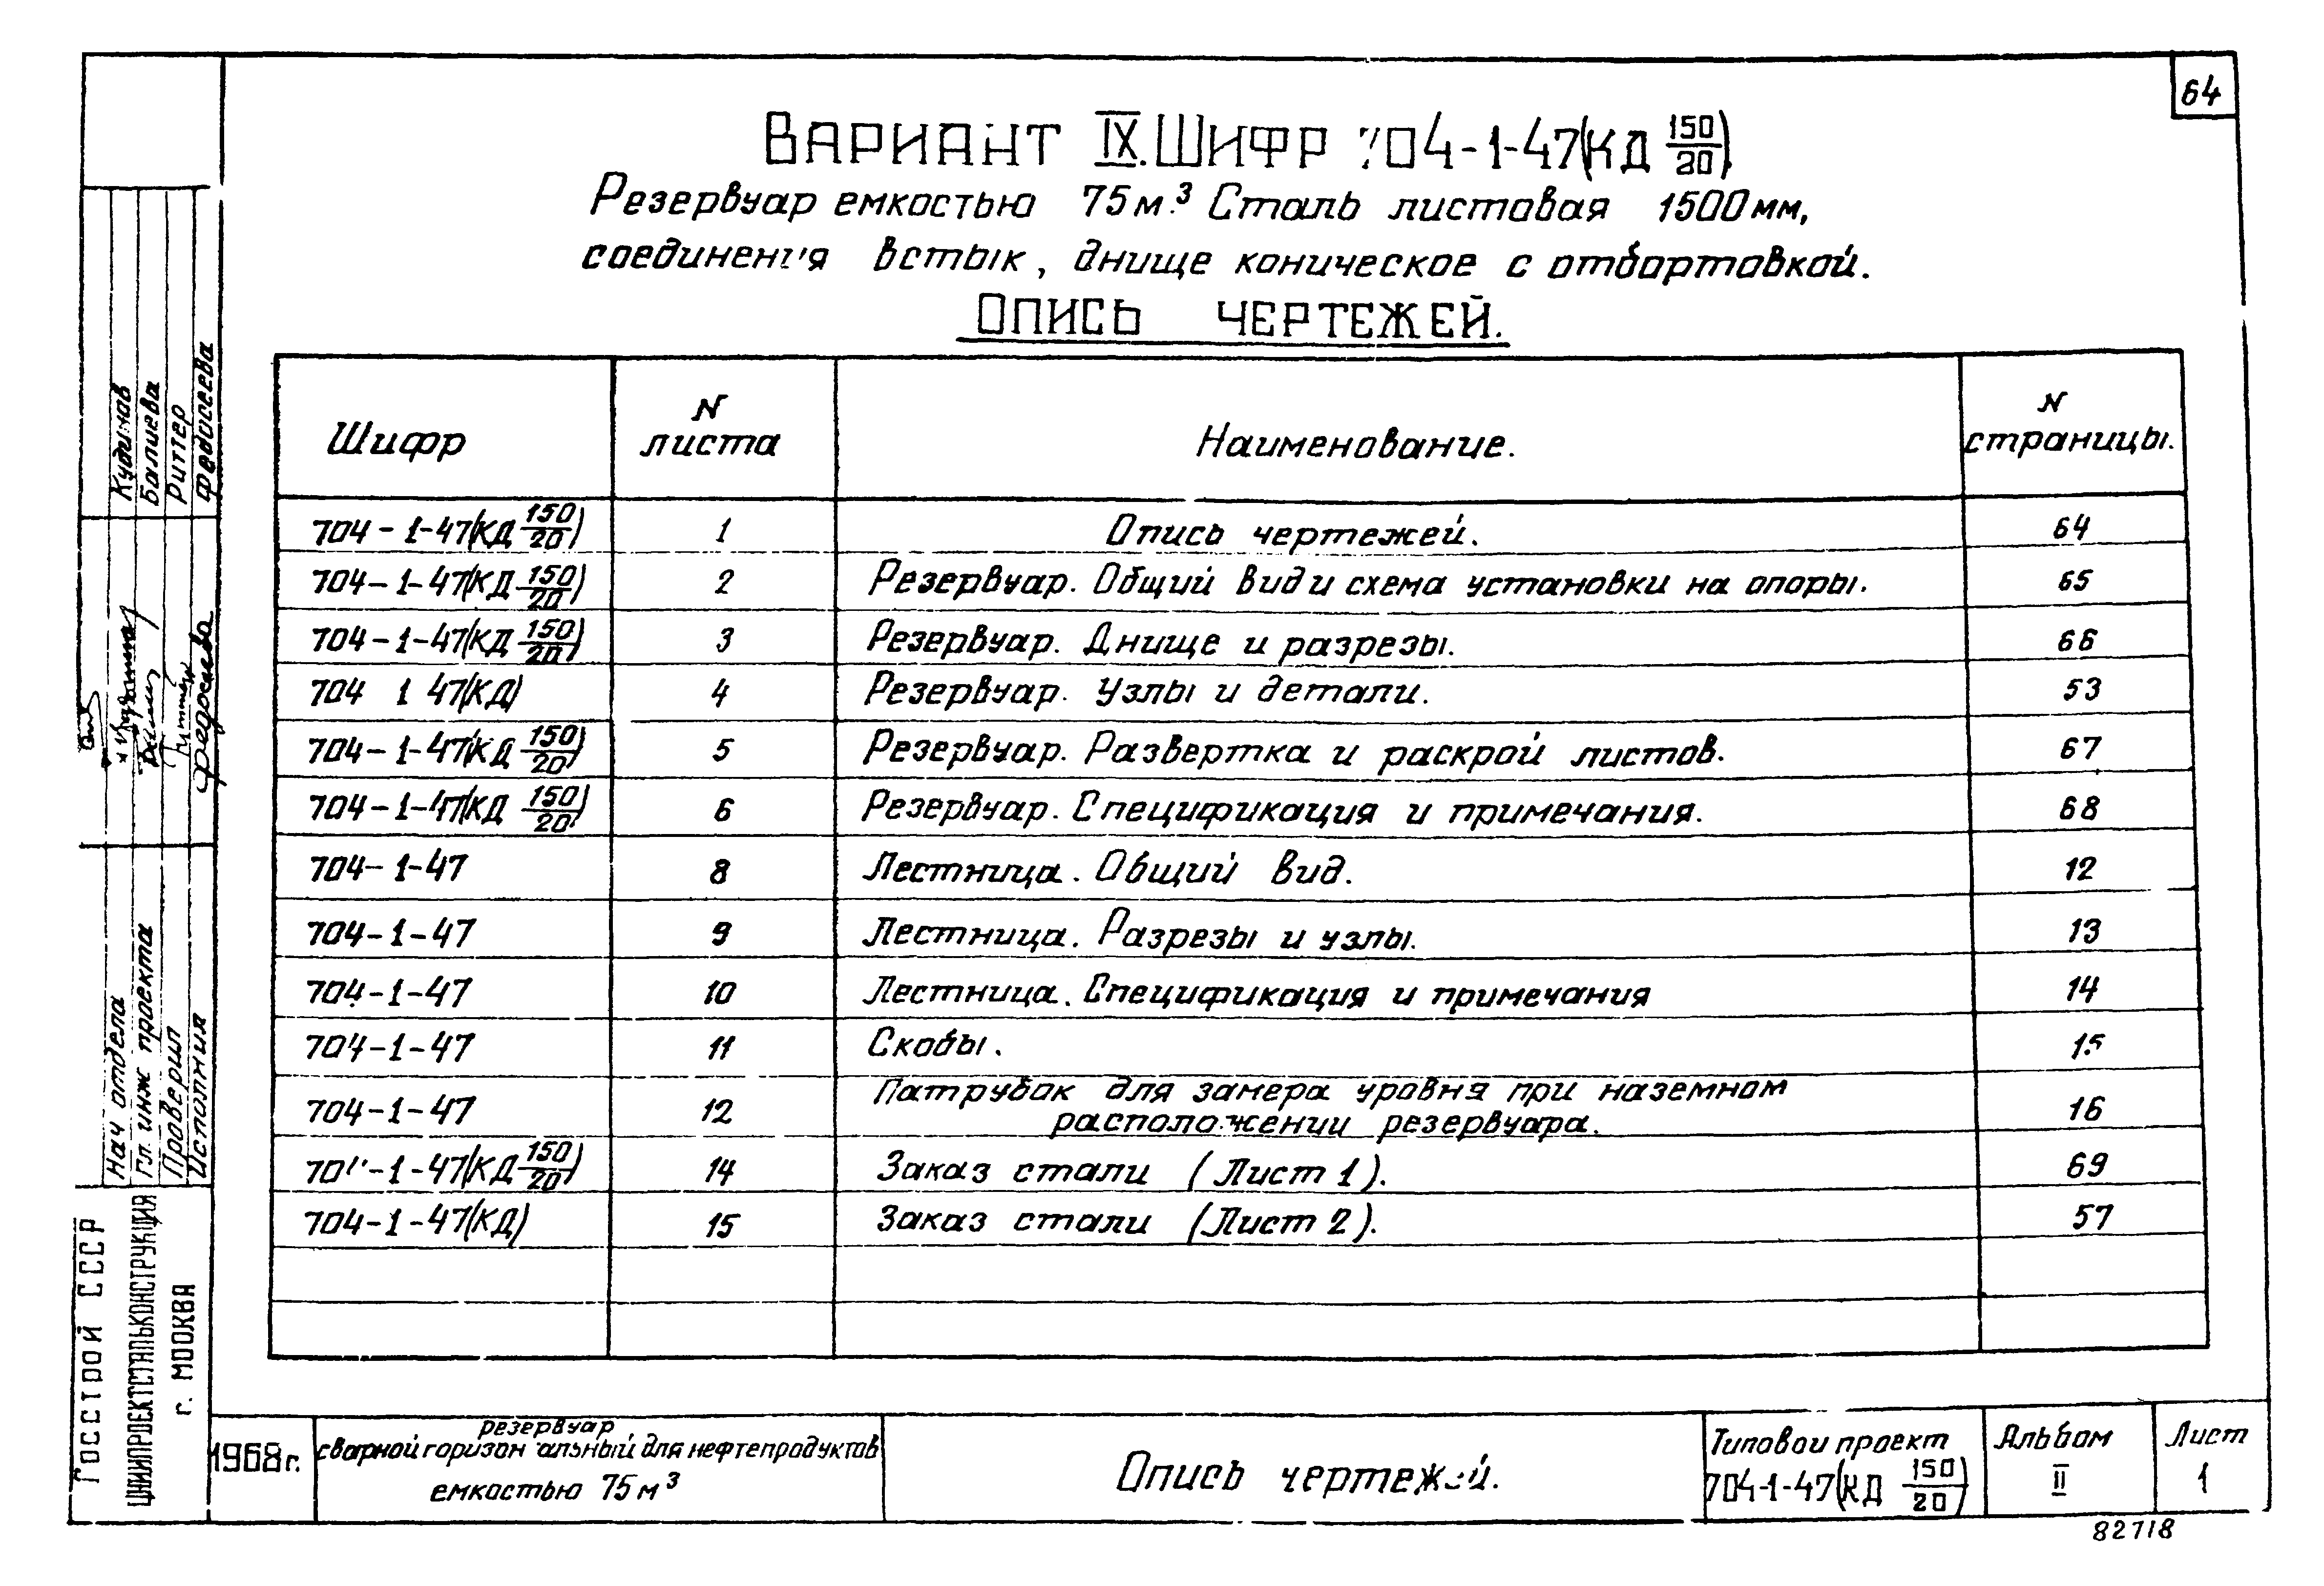 64
ВАРИАНТ IX. ШИФР 704-1-47(КД 150/20)
Резервуар емкостью 75м.³ Сталь листовая 1500мм,
соединения встык, днище коническое с отбортовкой.
ОПИСЬ ЧЕРТЕЖЕЙ.
Шифр | N листа | Наименование. | N страницы.
704-1-47(КД 150/20) | 1 | Опись чертежей. | 64
704-1-47(КД 150/20) | 2 | Резервуар. Общий вид и схема установки на опоры. | 65
704-1-47(КД 150/20) | 3 | Резервуар. Днище и разрезы. | 66
704 1 47(КД) | 4 | Резервуар. Узлы и детали. | 53
704-1-47(КД 150/20) | 5 | Резервуар. Развертка и раскрой листов. | 67
704-1-47(КД 150/20) | 6 | Резервуар. Спецификация и примечания. | 68
704-1-47 | 8 | Лестница. Общий вид. | 12
704-1-47 | 9 | Лестница. Разрезы и узлы. | 13
704-1-47 | 10 | Лестница. Спецификация и примечания | 14
704-1-47 | 11 | Скобы. | 15
704-1-47 | 12 | Патрубок для замера уровня при наземном расположении резервуара. | 16
704-1-47(КД 150/20) | 14 | Заказ стали (Лист 1). | 69
704-1-47(КД) | 15 | Заказ стали (Лист 2). | 57
Кудинов
Балиева
Риттер
Федосеева
Нач отдела
Гл. инж проекта
Проверил
Исполнил
ГОССТРОЙ СССР
ЦНИИПРОЕКТСТАЛЬКОНСТРУКЦИЯ
г. МОСКВА
1968г.
резервуар
сварной горизонтальный для нефтепродуктов
емкостью 75м³
Опись чертежей.
Типовой проект
704-1-47(КД 150/20)
Альбом
II
Лист
1
82718